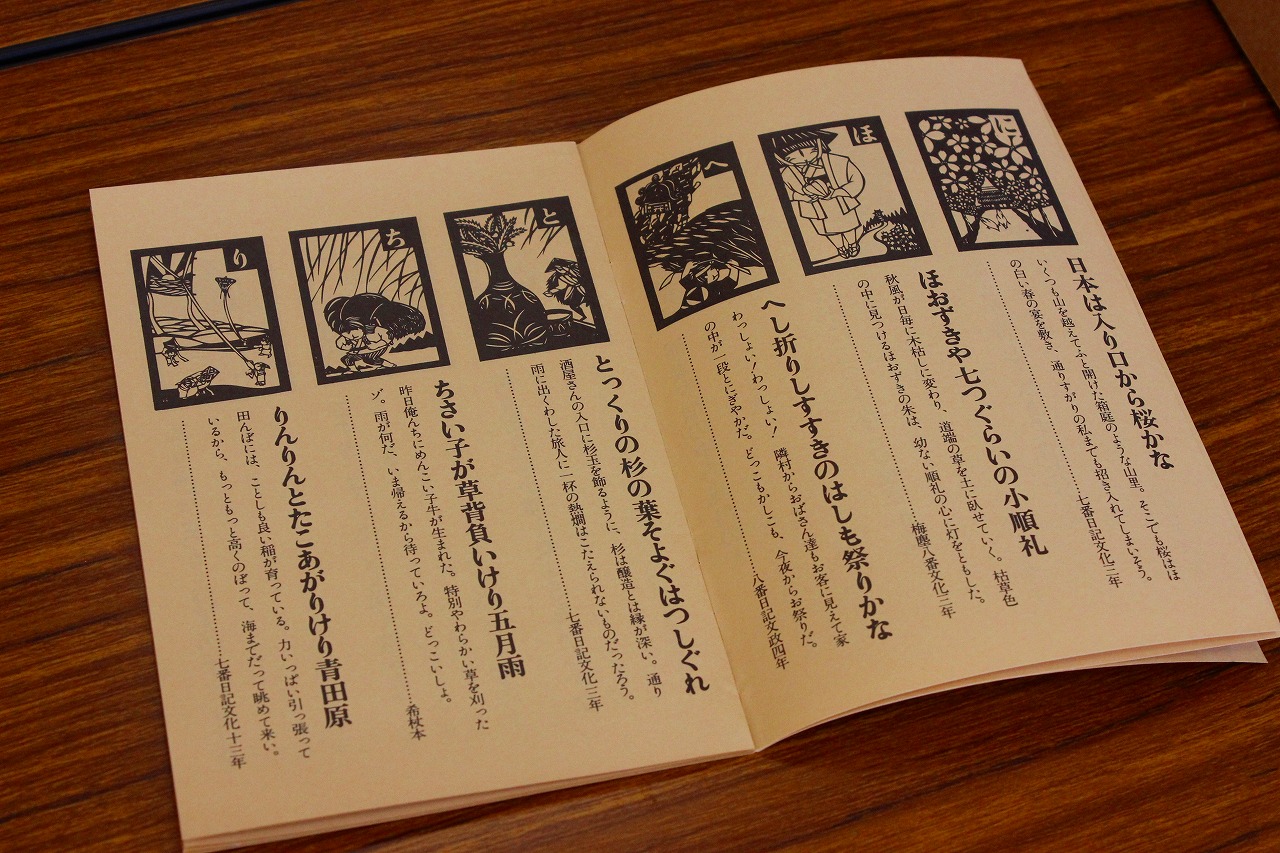 に
日本は入り口から桜かな
いくつも山を越えてふと開けた箱庭のような山里。そこでも桜はほ
の白い春の宴を敷き、通りすがりの私までも招き入れてしまいそう。
七番日記文化二年
ほ
ほおずきや七つぐらいの小順礼
秋風が日毎に木枯しに変わり、道端の草を土に臥せていく。枯草色
の中に見つけるほおずきの朱は、幼ない順礼の心に灯をともした。
梅塵八番文化三年
へ
へし折りしすすきのはしも祭りかな
わっしょい!わっしょい! 隣村からおばさん達もお客に見えて家
の中が一段とにぎやかだ。どっこもかしこも、今夜からお祭りだ。
八番日記文政四年
と
とっくりの杉の葉そよぐはつしぐれ
酒屋さんの入口に杉玉を飾るように、杉は醸造とは縁が深い。通り
雨に出くわした旅人に一杯の熱燗はこたえられないものだったろう。
七番日記文化三年
ち
ちさい子が草背負いけり五月雨
昨日俺んちにめんこい子牛が生まれた。特別やわらかい草を刈った
ゾ。雨が何だ、いま帰えるから待っていろよ。どっこいしょ。
希杖本
り
りんりんとたこあがりけり青田原
田んぼには、ことしも良い稲が育っている。力いっぱい引っ張って
いるから、もっともっと高くのぼって、海までだって眺めて来い。
七番日記文化十三年